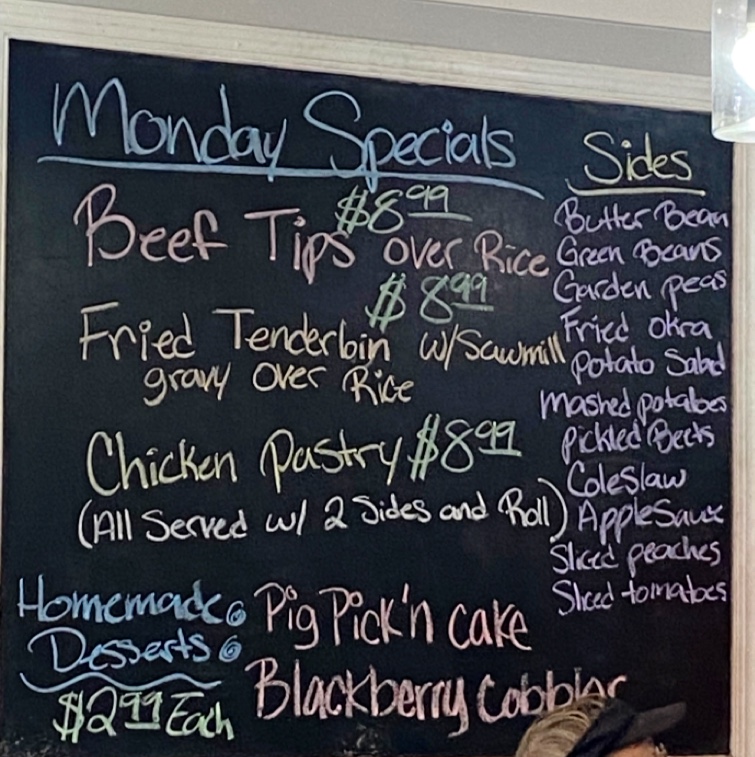 Monday Specials
$8.99
Beef Tips over Rice
$8.99
Fried Tenderloin w/Sawmill
gravy over Rice
Chicken Pastry $8.99
(All Served w/ 2 Sides and Roll)
Homemade
Desserts
$2.99 Each
Pig Pick'n cake
Blackberry Cobbler
Sides
Butter Bean
Green Beans
Garden peas
Fried okra
Potato Salad
Mashed potatoes
Pickled Beets
Coleslaw
AppleSauce
Sliced peaches
Sliced tomatoes